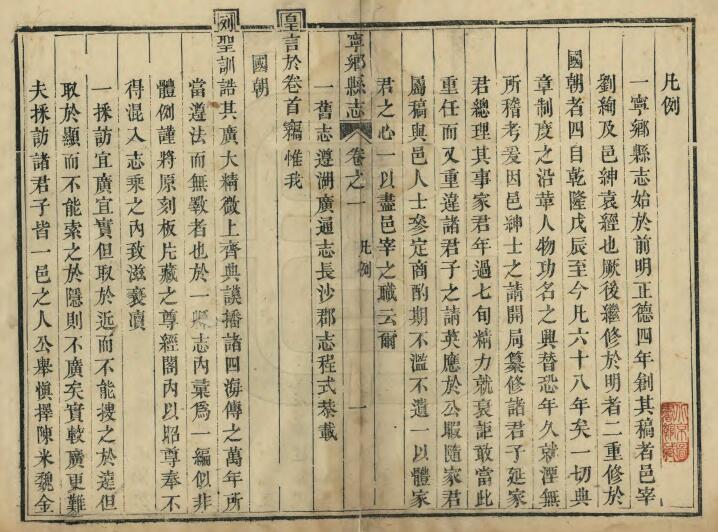 凡例
一寧鄉縣志始於前明正德四年創其稿者邑宰
劉絢及邑紳袁經也厥後繼修於明者二重修於
國朝者四自乾隆戊辰至今凡六十八年矣一切典
章制度之沿革人物功名之興替恐年久就湮無
所稽考爰因邑紳士之請開局纂修諸君子延家
君總理其事家君年過七旬精力就衰詎敢當此
重任而又重違諸君子之請英應於公暇隨家君
屬稿與邑人士參定商酌期不濫不遺一以體家
君之心一以盡邑宰之職云爾
寧鄉縣志 卷之一 凡例 一
一舊志遵湖廣通志長沙郡志程式恭載
皇言於卷首竊惟我
國朝
列聖訓誥其廣大精微上齊典謨播諸四海傳之萬年所
當遵法而無斁者也於一縣志內彙為一編似非
體例謹將原刻板片藏之尊經閣內以昭尊奉不
得混入志乘之內致滋褻瀆
一採訪宜廣宜實但取於近而不能搜之於遠但
取於顯而不能索之於隱則不廣矣實較廣更難
夫採訪諸君子皆一邑之人公舉慎擇陳米魏金